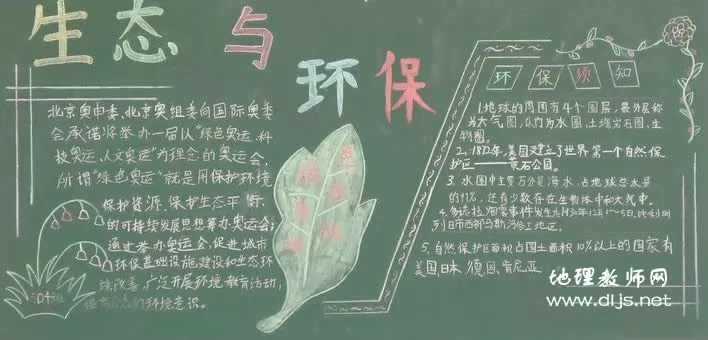 生态与环保
北京奥申委、北京奥组委向国际奥委
会承诺将举办一届以“绿色奥运、科
技奥运、人文奥运”为理念的奥运会,
所谓“绿色奥运”就是用保护环境
保护资源、保护生态平衡
的可持续发展思想筹办奥运会;
通过举办奥运会,促进城市
环保基础设施建设和生态环
境改善,广泛开展环境教育活动,
提高公众的环境意识。
环保须知
1.地球的周围有4个圈层,最外层称
为大气圈,以内为水圈、土壤岩石圈、生
物圈。
2.1872年,美国建立了世界第一个自然保
护区——黄石公园。
3.水圈中主要成分是海水,占地球总水量
的97%,还有少数存在生物体中和大气中。
4.烟雾事件发生在1930年12月1~5日,比利时
列日市西部马斯河谷工业区。
5.自然保护区面积占国土面积10%以上的国家有
美国、日本、德国、肯尼亚
地理教师网
www.dljs.net